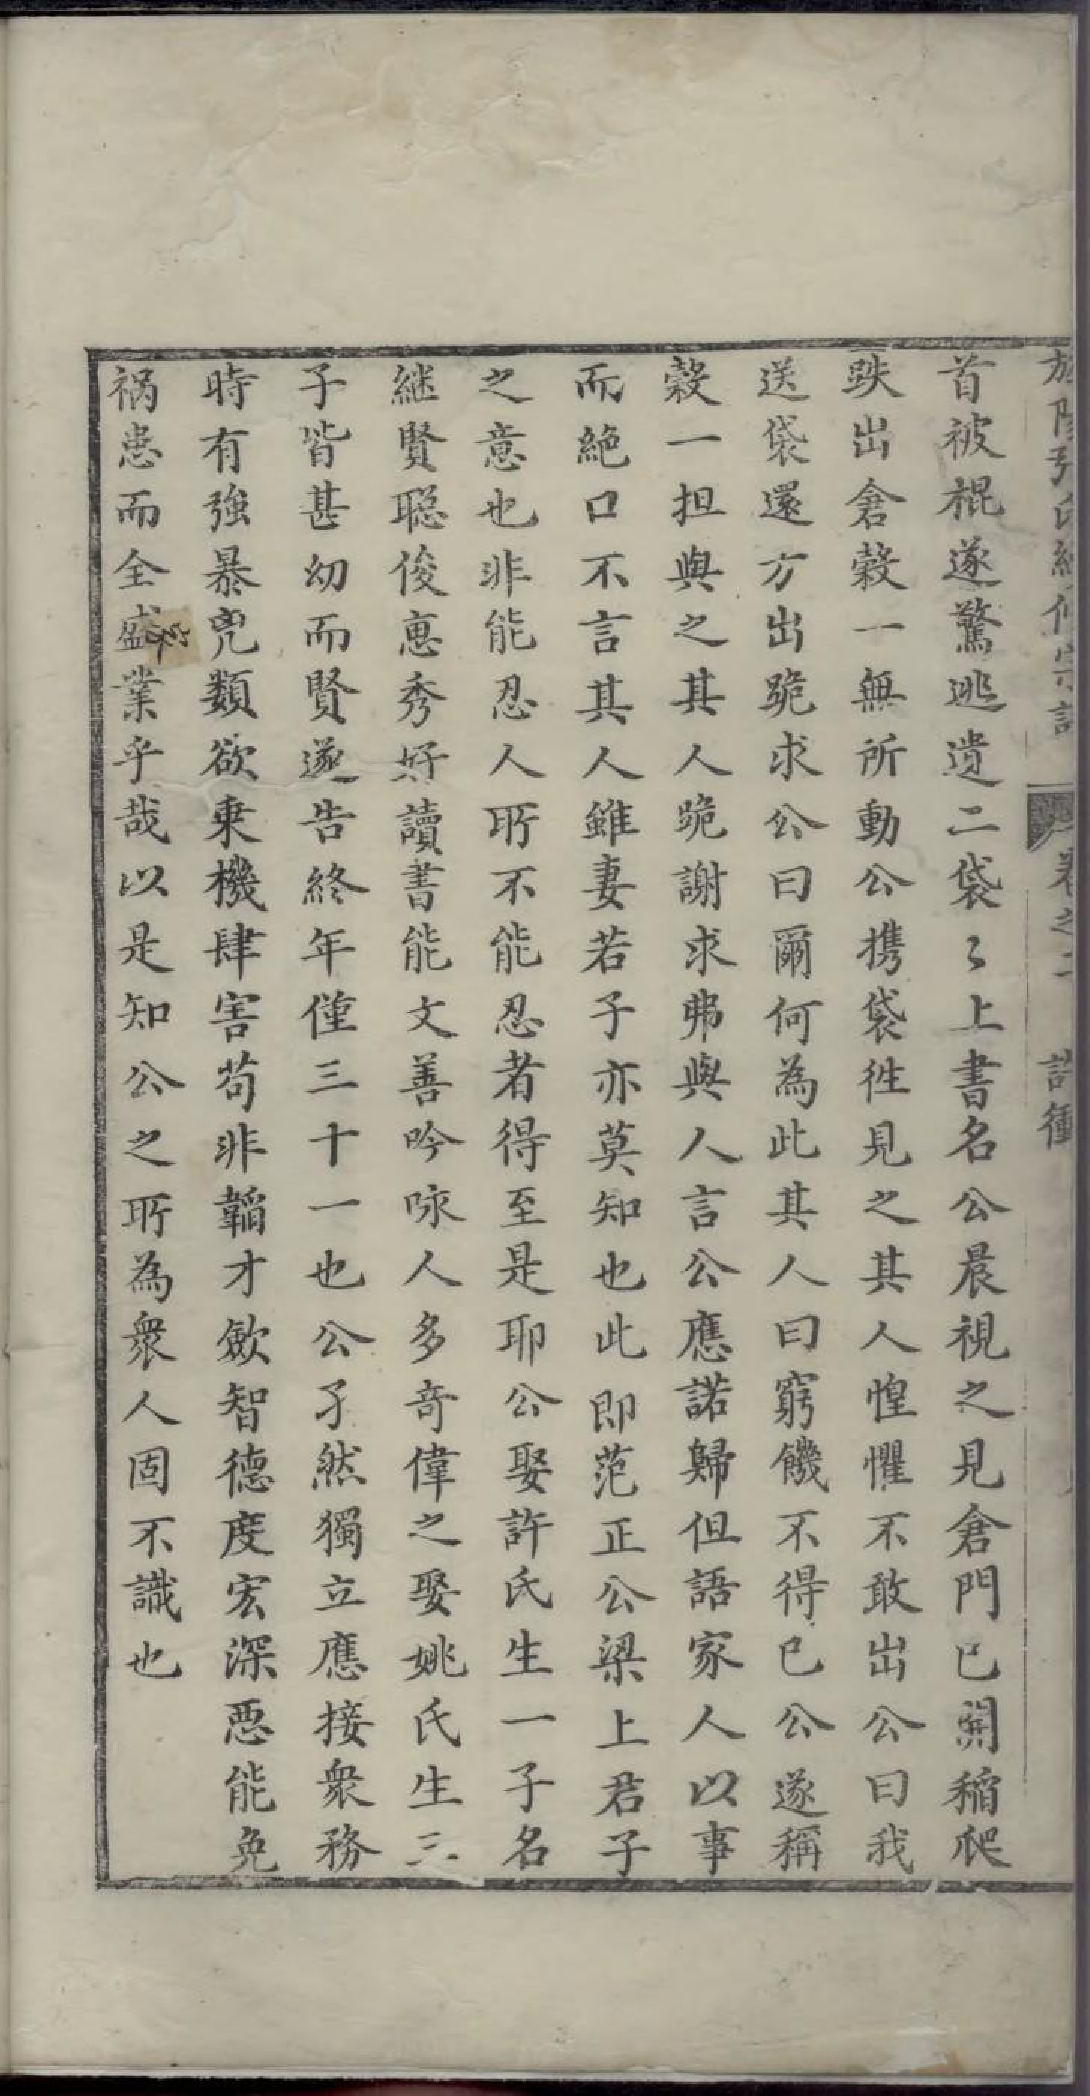 卷之二
首被棍遂驚逃遺二袋〻上書名公晨視之見倉門已開稲爬
跌出倉穀一無所動公携袋徃見之其人惶懼不敢出公曰我
送袋還方出跪求公曰爾何為此其人曰窮饑不得已公遂稱
穀一担與之其人跪謝求弗與人言公應諾歸但語家人以事
而絶口不言其人雖妻若子亦莫知也此即范正公梁上君子
之意也非能忍人所不能忍者得至是耶公娶許氏生一子名
継賢聡俊惠秀好讀書能文善吟咏人多奇偉之娶姚氏生三
子皆甚幼而賢遂告終年僅三十一也公孑然獨立應接衆務
時有強暴兇類欲乗機肆害苟非韜才歛智德度宏深惡能免
禍患而全盛業乎哉以是知公之所為衆人固不識也